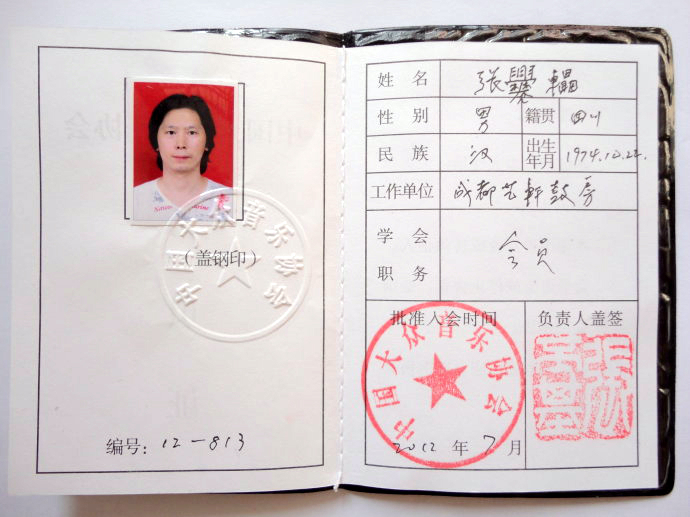 中国大众音乐协会
(盖钢印)
编号: 12-813
姓 名 张
性 别 男 籍贯 四川
民 族 汉 出生年月 1974.12.22.
工作单位 成都艺軒鼓房
学 会 职 务 会员
批准入会时间 负责人盖签
中国大众音乐协会
2012 年 7 月